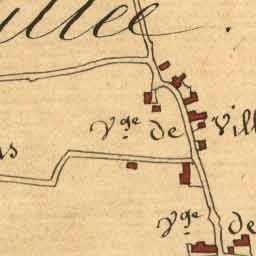 ullée.
Vge de Vill
ns
Vge de